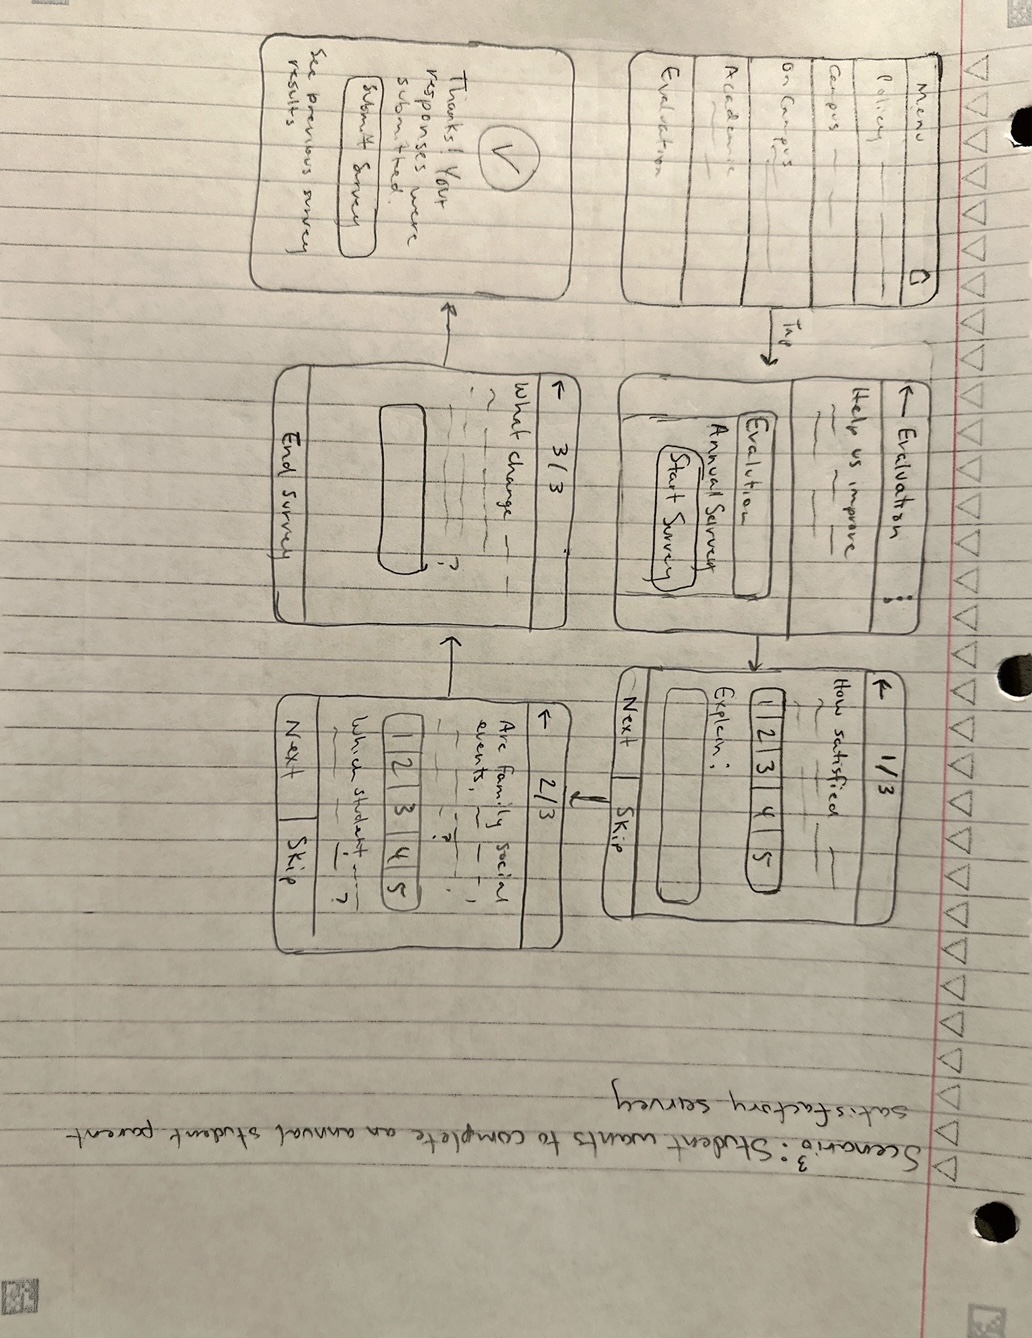 Scenario 3: Student wants to complete an annual student parent
satisfactory survey
Menu
Policy
Campus
On Campus
Academic
Evaluation
Tap
← Evaluation
Help us improve
Evalution
Annual Survey
Start Survey
← 1/3
How satisfied
1 2 3 4 5
Explain:
Next | Skip
← 2/3
Are family social
events,
?
1 2 3 4 5
Which student
?
Next | Skip
← 3/3
What change
?
End survey
Thanks! Your
responses were
submitted.
Submit Survey
See previous survey
results